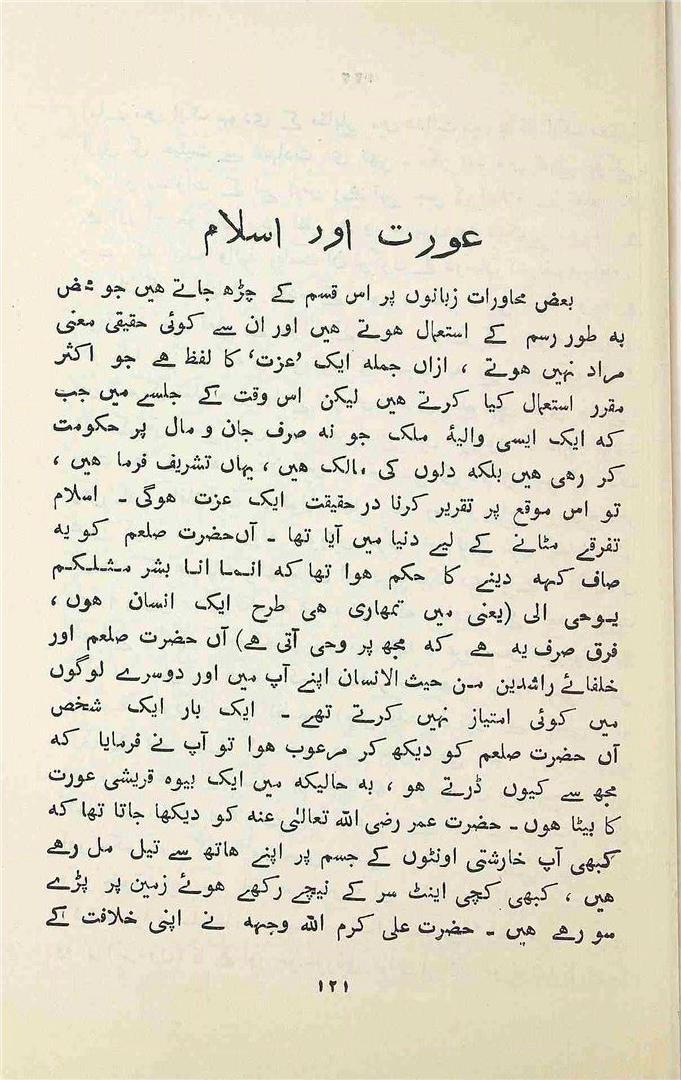 عورت اور اسلام
بعض محاورات زبانوں پر اس قسم کے چڑھ جاتے ہیں جو محض
بہ طور رسم کے استعمال ہوتے ہیں اور ان سے کوئی حقیقی معنی
مراد نہیں ہوتے ، ازاں جملہ ایک ’عزت‘ کا لفظ ہے جو اکثر
مقرر استعمال کیا کرتے ہیں لیکن اس وقت کے جلسے میں جب
کہ ایک ایسی والیۂ ملک جو نہ صرف جان و مال پر حکومت
کر رہی ہیں بلکہ دلوں کی مالک ہیں ، یہاں تشریف فرما ہیں ،
تو اس موقع پر تقریر کرنا در حقیقت ایک عزت ہوگی ۔ اسلام
تفرقے مٹانے کے لیے دنیا میں آیا تھا ۔ آں‌حضرت صلعم کو یہ
صاف کہہ دینے کا حکم ہوا تھا کہ انـمـا انـا بشر مـثـلـکـم
یـوحی الی (یعنی میں تمھاری ہی طرح ایک انسان ہوں ،
فرق صرف یہ ہے کہ مجھ پر وحی آتی ہے) آں حضرت صلعم اور
خلفائے راشدین مـن حیث الانسان اپنے آپ میں اور دوسرے لوگوں
میں کوئی امتیاز نہیں کرتے تھے ۔ ایک بار ایک شخص
آں حضرت صلعم کو دیکھ کر مرعوب ہوا تو آپ نے فرمایا کہ
مجھ سے کیوں ڈرتے ہو ، بہ حالیکہ میں ایک بیوہ قریشی عورت
کا بیٹا ہوں ۔ حضرت عمر رضی اللہ تعالیٰ عنہ کو دیکھا جاتا تھا کہ
کبھی آپ خارشتی اونٹوں کے جسم پر اپنے ہاتھ سے تیل مل رہے
ہیں ، کبھی کچی اینٹ سر کے نیچے رکھے ہوئے زمین پر پڑے
سو رہے ہیں ۔ حضرت علی کرم اللہ وجہہ نے اپنی خلافت کے
۱۲۱